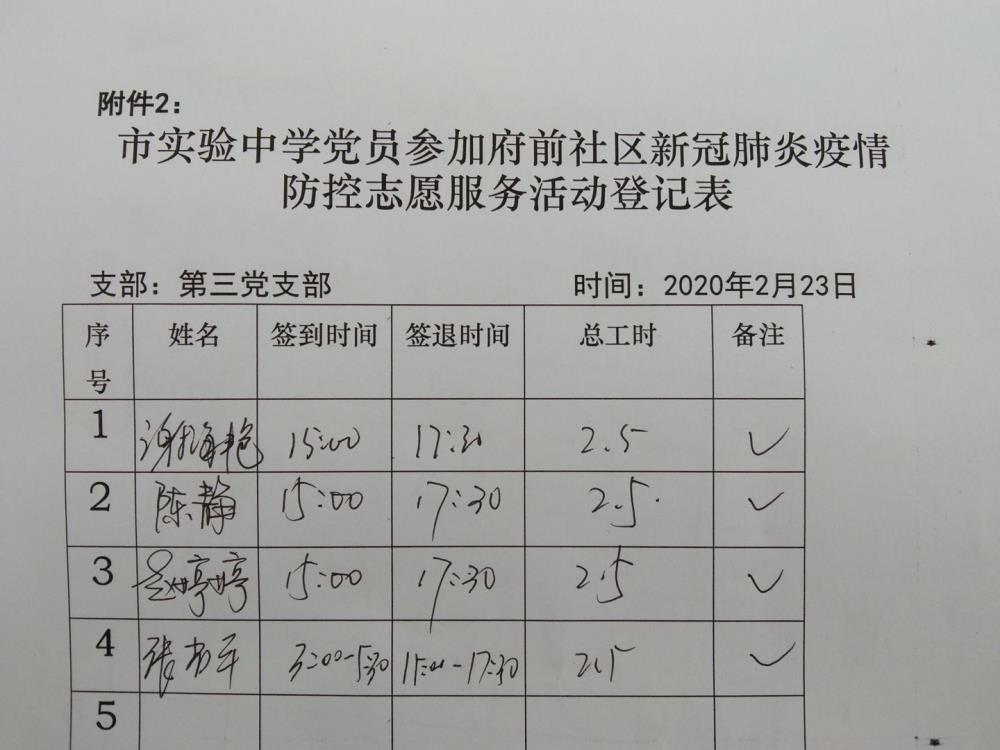 附件2：
市实验中学党员参加府前社区新冠肺炎疫情
防控志愿服务活动登记表
支部：第三党支部 时间：2020年2月23日
序号 姓名 签到时间 签退时间 总工时 备注
1 谢海艳 15:00 17:30 2.5 ✓
2 陈静 15:00 17:30 2.5 ✓
3 赵婷婷 15:00 17:30 2.5 ✓
4 张 3:00-5:30 15:00-17:30 2.5 ✓
5